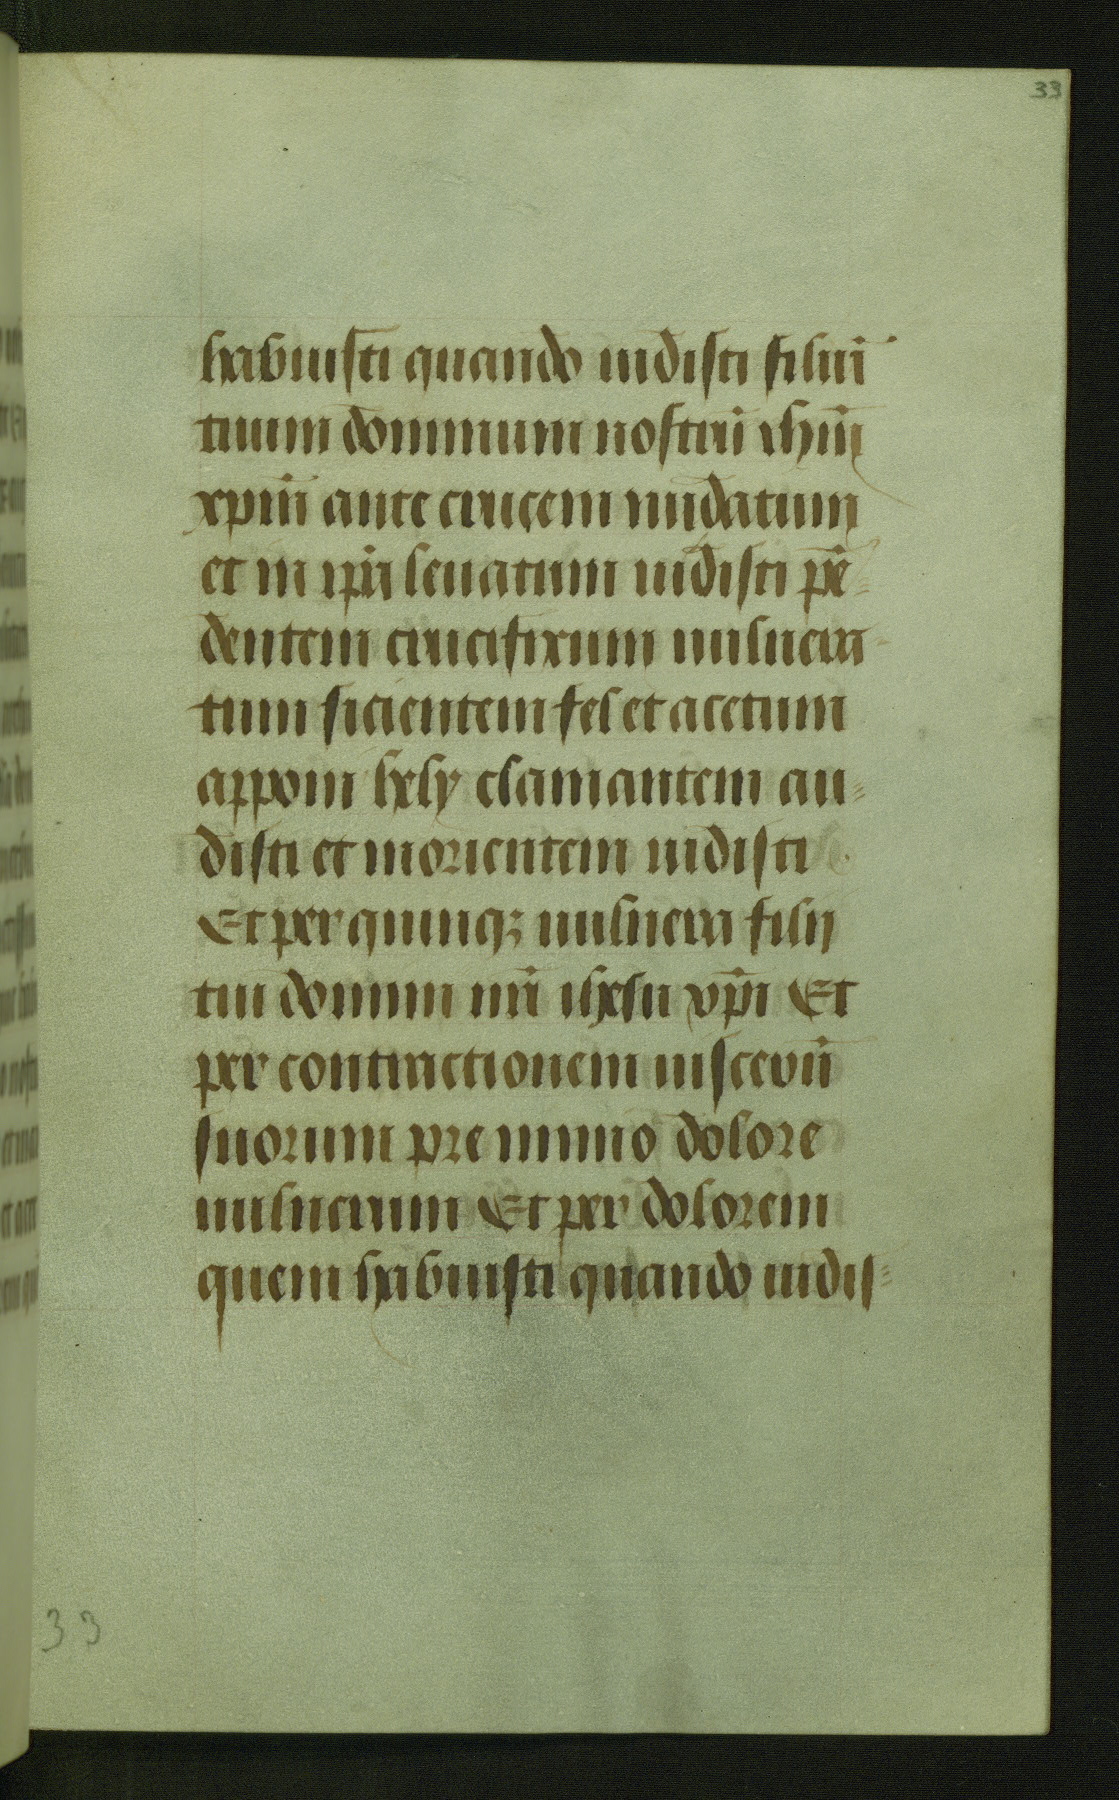 33
habuisti quando uidisti filiū
tuum dominum nostrū ihm̄
xpm̄ ante crucem nudatum
et in ip̄a leuatum uidisti pē=
dentem crucifixum uulnera-
tum sicientem fel et acetum
apponi hely clamantem au=
disti et morientem uidisti
Et per quinq; uulnera filij
tui domini nr̄i ihesu xp̄i Et
per contractionem uiscerū
suorum pre nimio dolore
uulnerum Et per dolorem
quem habuisti quando uidis=
33